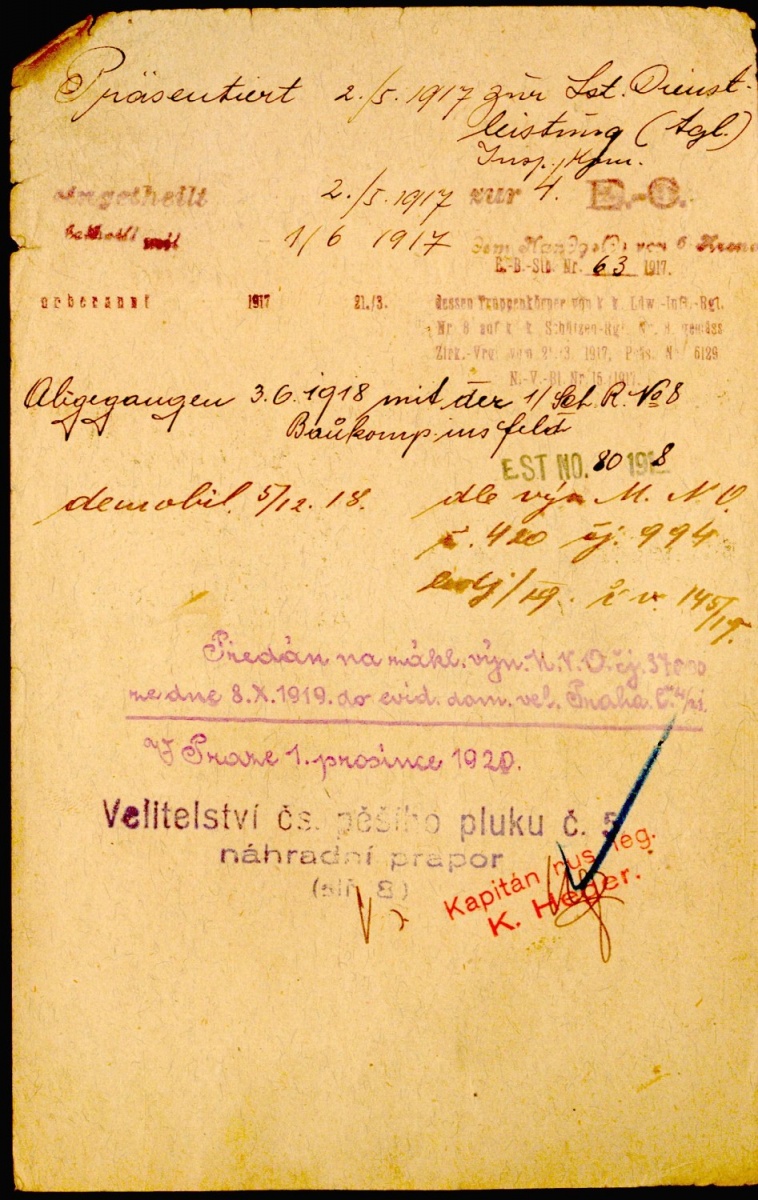 Präsentiert 2./5. 1917 zur Lst. Dienst-
leistung (tgl.)
Insp. Kom.
Eingetheilt 2./5. 1917 zur 4. E.-C.
Betheilt mit 1/6 1917 dem Handgelde von 6 Kronen
E.-B.-Stb. Nr. 63 1917.
1917 21./3. dessen Truppenkörper von k. k. Ldw.-Inft.-Rgt.
Nr. 8 auf k. k. Schützen-Rgt. Nr. 8 gemäss
Zirk.-Vrg. vom 21./3. 1917, Präs. Nr. 6129
N.-V.-Bl. Nr. 15/1917.
Abgegangen 3.6.1918 mit der 1/Sch. R. No 8
Baukomp. ins Feld
EST NO. 80 1918
demobil. 5/12. 18. dle výn. M. N. O.
č. 420 čj. 994
/19. č. v. 145/19.
Předán na zákl. výn. M. N. O. čj.
ze dne 8.X.1919. do evid. dom. vel. Praha
V Praze 1. prosince 1920.
Velitelství čs. pěšího pluku č. 5
náhradní prapor
8)
Kapitán rus. leg.
K. Heger.